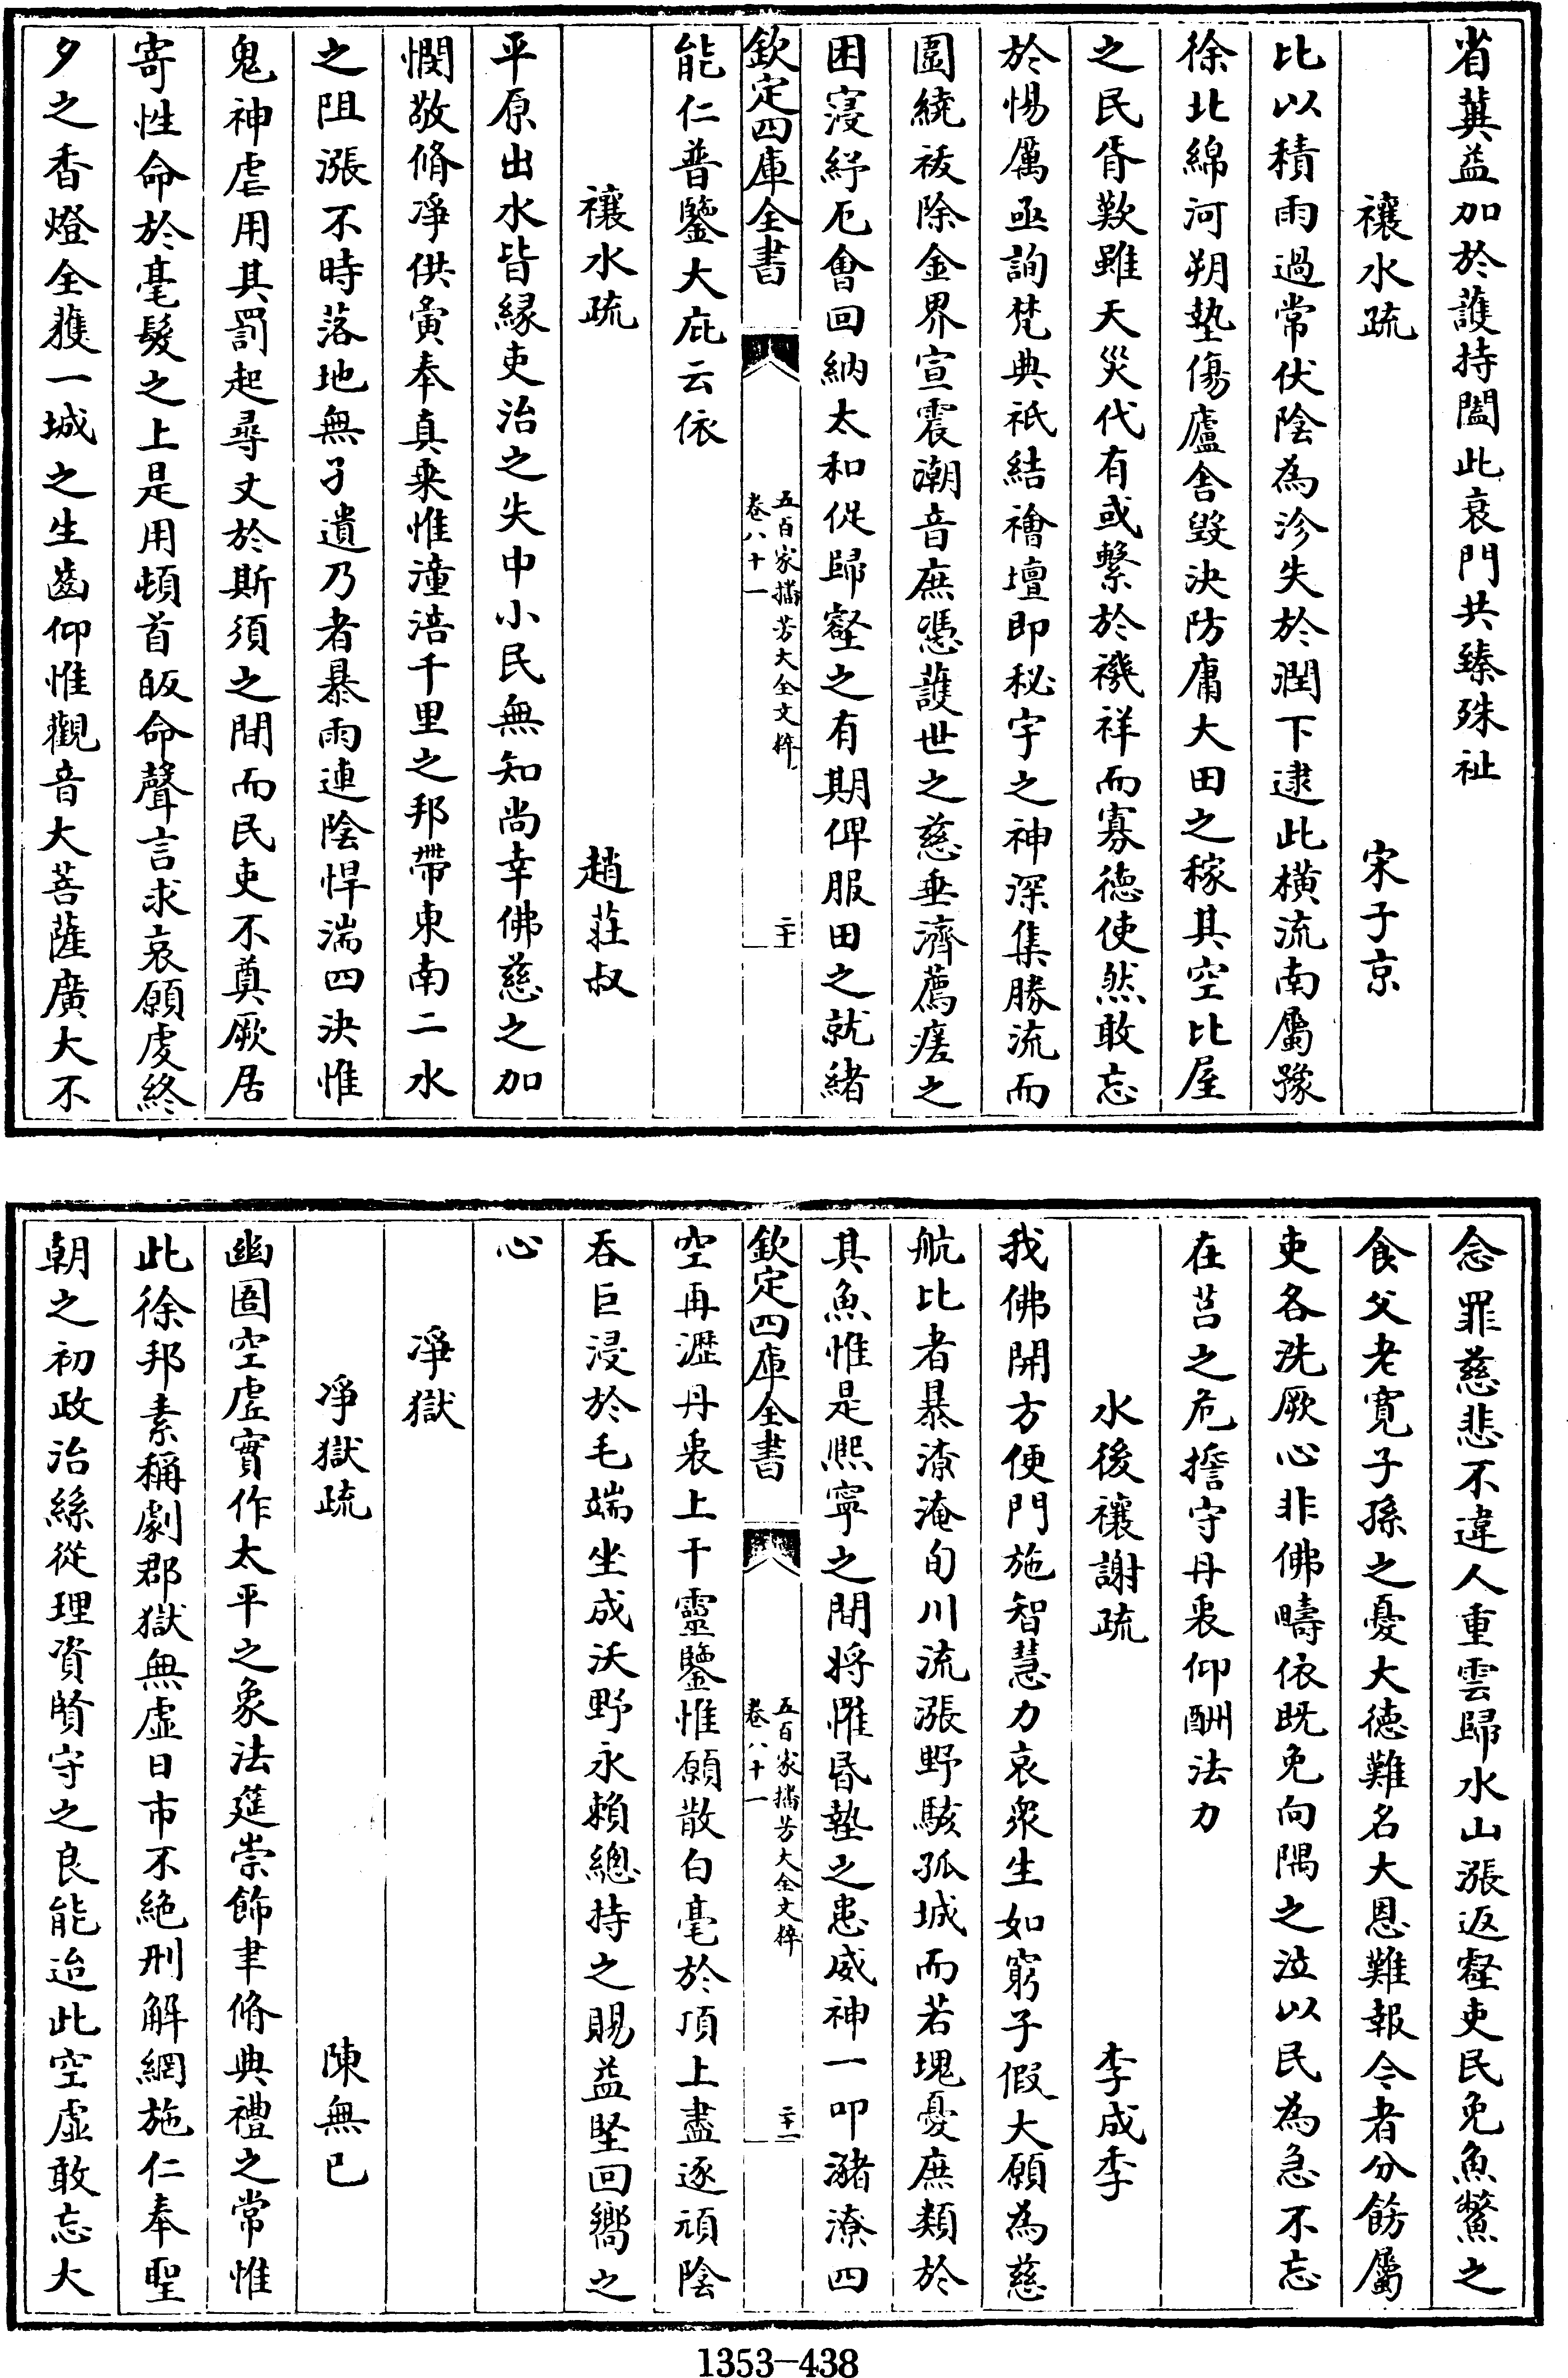 省冀益加於護持闔此衰門共臻殊祉
禳水疏 宋子京
比以積雨過常伏陰為沴失於潤下逮此横流南屬豫
徐北綿河朔墊傷廬舎毁決防庸大田之稼其空比屋
之民胥歎雖天災代有或繫於禨祥而寡徳使然敢忘
於惕厲亟詢梵典祇結禬壇即秘宇之神深集勝流而
圍繞祓除金界宣震潮音庶憑護世之慈垂濟薦瘥之
困寖紓厄會回納太和促歸壑之有期俾服田之就緒
欽定四庫全書 五百家播芳大全文粹 卷八十一 二十
能仁普鑒大庇云依
禳水疏 趙莊叔
平原出水皆縁吏治之失中小民無知尚幸佛慈之加
憫敬脩凈供寅奉真乗惟潼涪千里之邦帶東南二水
之阻漲不時落地無孑遺乃者暴雨連陰悍湍四決惟
鬼神虐用其罰起尋丈於斯須之間而民吏不奠厥居
寄性命於毫髮之上是用頓首皈命聲言求哀願虔終
夕之香燈全獲一城之生齒仰惟觀音大菩薩廣大不
念罪慈悲不違人重雲歸水山漲返壑吏民免魚鱉之
食父老寛子孫之憂大徳難名大恩難報令者分飭屬
吏各洗厥心非佛疇依既免向隅之泣以民為急不忘
在莒之危擔守丹衷仰酬法力
水後禳謝疏 李成季
我佛開方便門施智慧力哀衆生如窮子假大願為慈
航比者暴潦淹旬川流漲野駭孤城而若塊憂庶類於
其魚惟是熈寧之間將罹昏墊之患威神一叩瀦潦四
欽定四庫全書 五百家播芳大全文粹 卷八十一 二十一
空再瀝丹衷上干靈鑒惟願散白毫於頂上盡逐頑陰
吞巨浸於毛端坐成沃野永賴總持之賜益堅回嚮之
心
凈獄
凈獄疏 陳無已
幽圄空虚實作太平之象法筵崇飾聿脩典禮之常惟
此徐邦素稱劇郡獄無虚日市不絶刑解網施仁奉聖
朝之初政治絲從理資賢守之良能迨此空虚敢忘大
1353—438